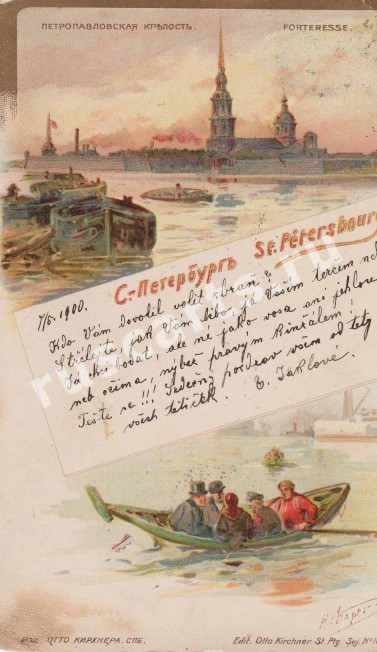 ПЕТРОПАВЛОВСКАЯ КРѢПОСТЬ. FORTERESSE.
С.-Петербургъ St. Pétersbourg
7/5. 1900.
Kdo Vám dovolil volit zbraně?
Střílejte jak Vám libo, je Vaším tercem
Já chci bodat, ale ne jako vosa ani jehlou
neb očima, nýbrž pravým kinžálem!
Těšte se!!! Srdečný pozdrav všem od tety
všech tetiček. E. Jaklové.
Изд. ОТТО КИРХНЕРА. СПБ. Edit. Otto Kirchner St. Ptg. Sej. №